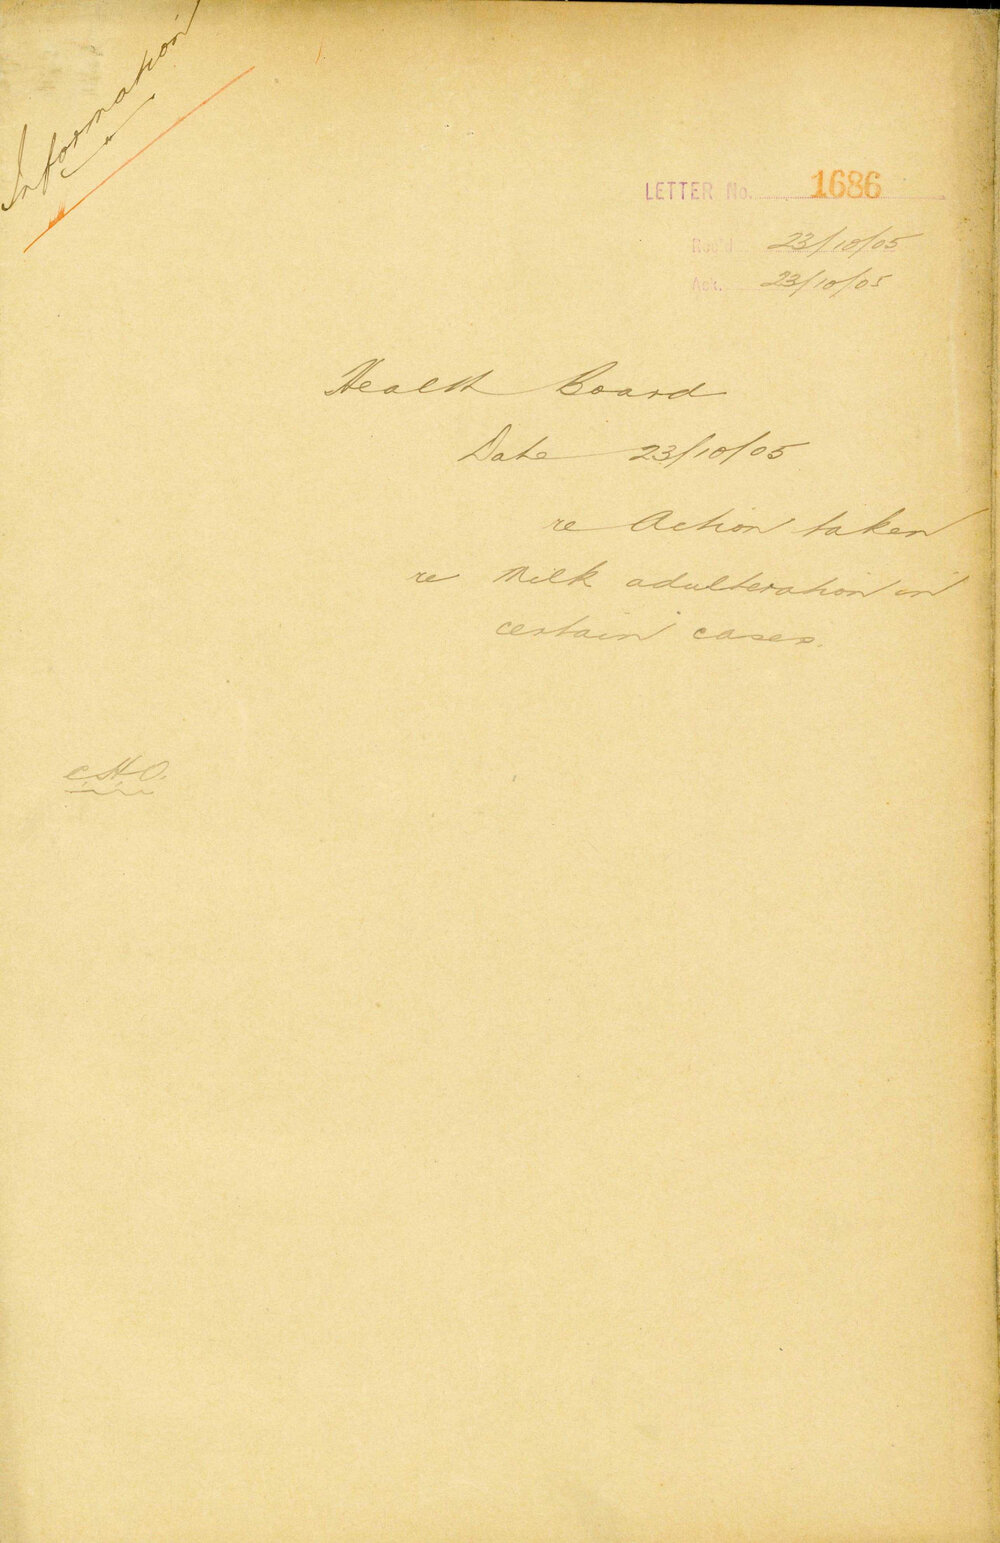 Information
LETTER No. 1686
Rec'd 23/10/05
Ack. 23/10/05
Health Board
Date 23/10/05
re Action taken
re Milk adulteration in
certain cases.
C.H.O.